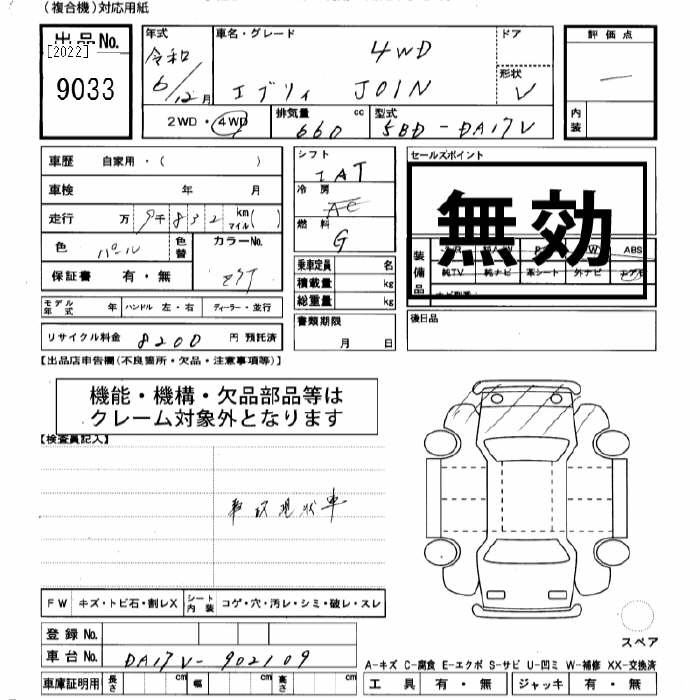 (複合機)対応用紙
出品No.
[2022]
9033
年式
令和
6/12月
車名・グレード
4WD
エブリィ JOIN
ドア
形状
V
2WD・4WD
排気量
660 cc
型式
5BD-DA17V
評価点
内装
車歴 自家用・( )
車検 年 月
走行 万 9千832 km マイル( )
色 パール
色替
カラーNo.
ZQT
保証書 有・無
モデル年式 年 ハンドル 左・右 ディーラー・並行
リサイクル料金 8200 円 預託済
シフト
IAT
冷房
AC
燃料
G
乗車定員 名
積載量 kg
総重量 kg
書類期限
月 日
セールスポイント
無効
装備品
ABS
純TV 純ナビ 革シート 外ナビ エアB
後日品
【出品店申告欄(不良箇所・欠品・注意事項等)】
機能・機構・欠品部品等は
クレーム対象外となります
【検査員記入】
現状車
FW キズ・トビ石・割レX シート内装 コゲ・穴・汚レ・シミ・破レ・スレ
登録No.
車台No. DA17V-902109
車庫証明用 長さ cm 幅 cm 高さ cm
スペア
A-キズ C-腐食 E-エクボ S-サビ U-凹ミ W-補修 XX-交換済
工具 有・無 ジャッキ 有・無